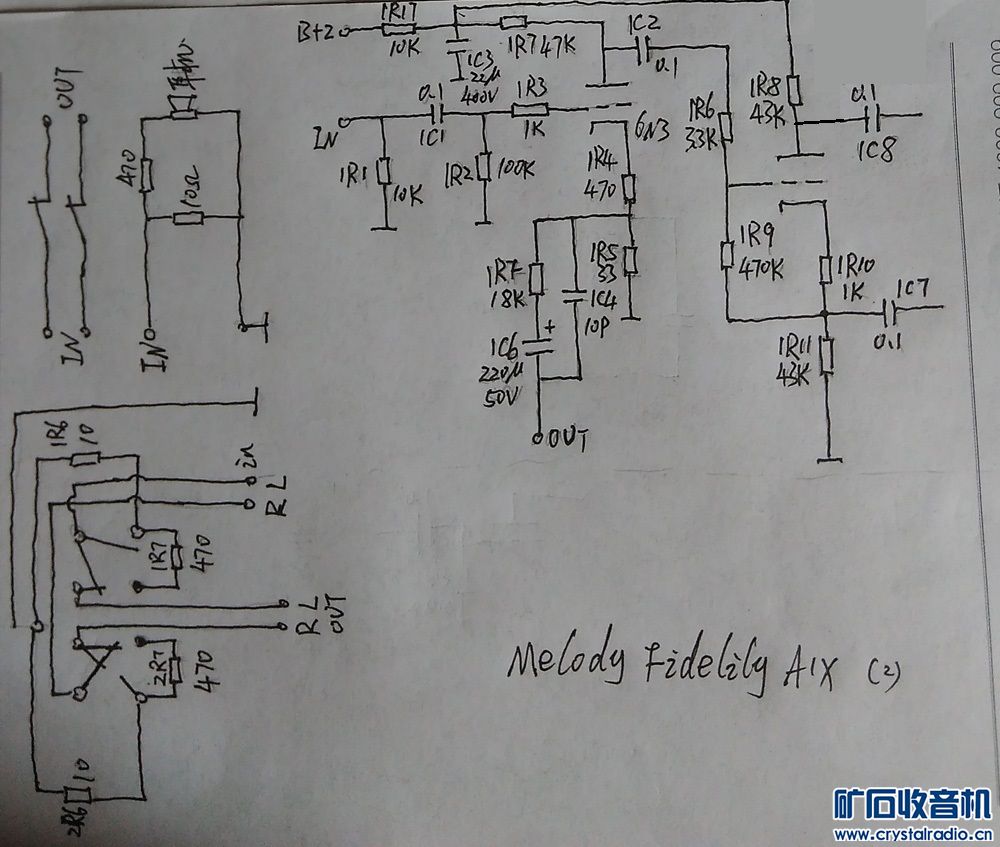 B+2
1R17
10K
1C3
22μ
400V
1R7 47K
1C2
0.1
IN
0.1
1C1
1R3
1K
6N3
1R1
10K
1R2
100K
1R4
470
1R6
33K
1R8
43K
0.1
1C8
1R7
18K
1C4
10P
1R5
33
1C6
+
220μ
50V
OUT
1R9
470K
1R10
1K
1C7
0.1
1R11
43K
OUT
IN
470
10Ω
耳机
IN
1R6
10
in
L
R
1R7
470
L
R
OUT
2R7
470
2R6
10
Melody Fidelily A1X (2)
矿石收音机
www.crystalradio.cn